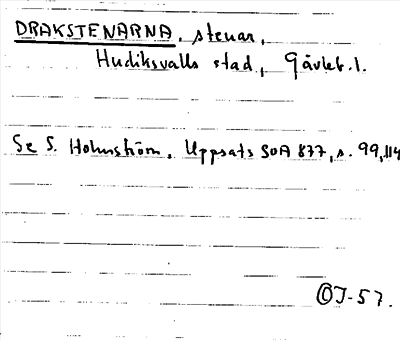 DRAKSTENARNA, stenar,
Hudiksvalls stad, Gävleb. l.
Se S. Holmström, Uppsats SOA 877, s. 99, 114
ÖJ-57.